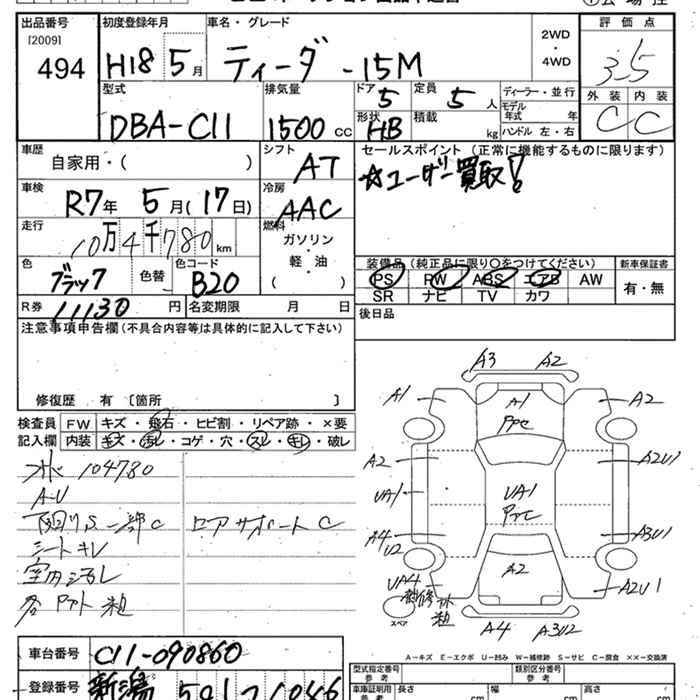 出品番号 初度登録年月 車名・グレード 評価点
[2009]
494 H18 5月 ティーダ - 15M 2WD・4WD 3.5
型式 排気量 ドア 5 定員 5人 ディーラー・並行 外装 内装
DBA-C11 1500cc 形状 HB 積載 kg モデル年式 年 C C
ハンドル 左・右
車歴 自家用・( ) シフト AT セールスポイント (正常に機能するものに限ります)
☆ユーザー買取!
車検 R7年 5月(17日) 冷房 AAC
走行 10万4千780km 燃料 ガソリン・軽・油 ( )
色 ブラック 色替 色コード B20 装備品 (純正品に限り〇をつけてください) 新車保証書
PS PW ABS エアB AW 有・無
SR ナビ TV カワ
R券 11130円 名変期限 月 日 後日品
注意事項申告欄 (不具合内容等は具体的に記入して下さい)
修復歴 有 〔箇所 〕
検査員 FW キズ・飛石・ヒビ割・リペア跡・×要
記入欄 内装 キズ・汚レ・コゲ・穴・スレ・キレ・破レ
104780
A-U
下回りS一部C ロアサポートC
シートキレ
室内汚レ
A3 A2
A1 A1 A2
A2 A2U1
UA1 UA1
A4 U2 A3U1
UA4 A2 A2U1
スペア
A4 A3U2
A-キズ E-エクボ U-凹み W-補修跡 S-サビ C-腐食 ××-交換済
車台番号 C11-090860
登録番号 新潟 501
型式指定番号 類別区分番号
車庫証明用 参考 長さ cm 幅 cm 高さ cm